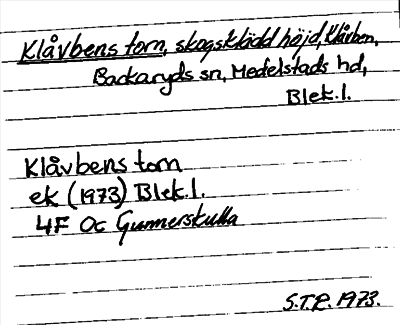 Klåvbens torn, skogsklädd höjd, Klåvben,
Backaryds sn, Medelstads hd,
Blek.l.
Klåvbens torn
ek (1973) Blek.l.
4F Oc Gunnerskulla
S.T.R. 1973.